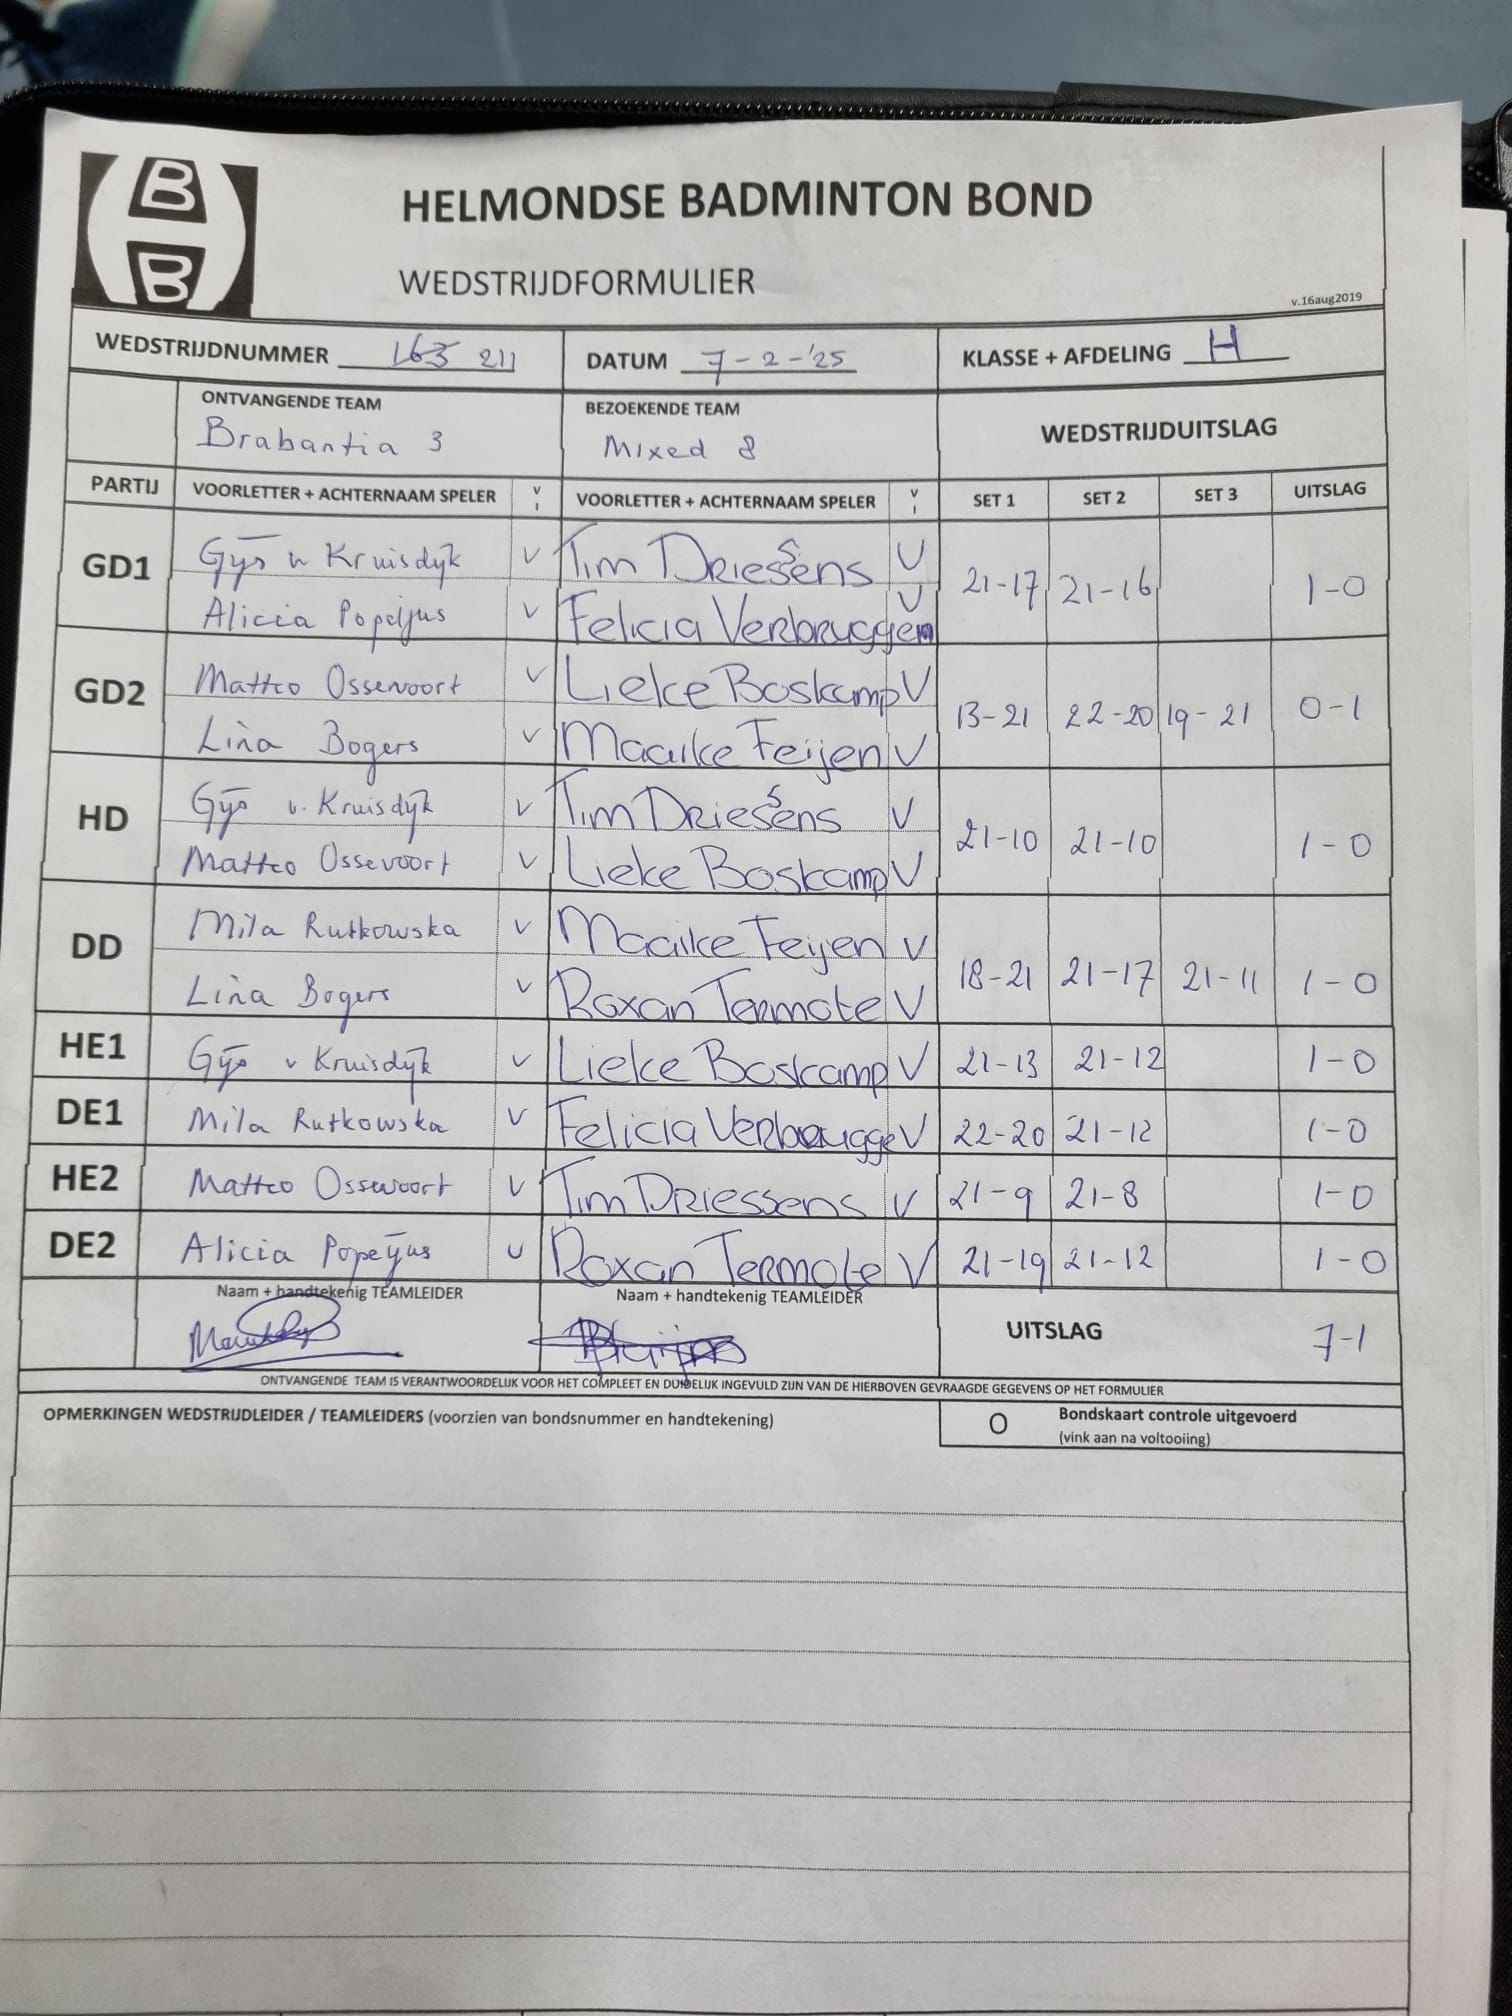 B
B
HELMONDSE BADMINTON BOND
WEDSTRIJDFORMULIER
v.16aug2019
WEDSTRIJDNUMMER 163 211 DATUM 7-2-'25 KLASSE + AFDELING H
ONTVANGENDE TEAM BEZOEKENDE TEAM WEDSTRIJDUITSLAG
Brabantia 3 Mixed 8
PARTIJ VOORLETTER + ACHTERNAAM SPELER V I VOORLETTER + ACHTERNAAM SPELER V I SET 1 SET 2 SET 3 UITSLAG
GD1 Gijs v Kruisdijk V Tim Driessens V 21-17 21-16 1-0
Alicia Popeijus V Felicia Verbruggen V
GD2 Matteo Ossevoort V Lieke Boskamp V 13-21 22-20 19-21 0-1
Lina Bogers V Maaike Feijen V
HD Gijs v. Kruisdijk V Tim Driessens V 21-10 21-10 1-0
Matteo Ossevoort V Lieke Boskamp V
DD Mila Rutkowska V Maaike Feijen V 18-21 21-17 21-11 1-0
Lina Bogers V Roxan Termote V
HE1 Gijs v Kruisdijk V Lieke Boskamp V 21-13 21-12 1-0
DE1 Mila Rutkowska V Felicia Verbrugge V 22-20 21-12 1-0
HE2 Matteo Ossevoort V Tim Driessens V 21-9 21-8 1-0
DE2 Alicia Popeijus V Roxan Termote V 21-19 21-12 1-0
Naam + handtekenig TEAMLEIDER Naam + handtekenig TEAMLEIDER
UITSLAG 7-1
ONTVANGENDE TEAM IS VERANTWOORDELIJK VOOR HET COMPLEET EN DUIDELIJK INGEVULD ZIJN VAN DE HIERBOVEN GEVRAAGDE GEGEVENS OP HET FORMULIER
OPMERKINGEN WEDSTRIJDLEIDER / TEAMLEIDERS (voorzien van bondsnummer en handtekening) O Bondskaart controle uitgevoerd
(vink aan na voltooiing)